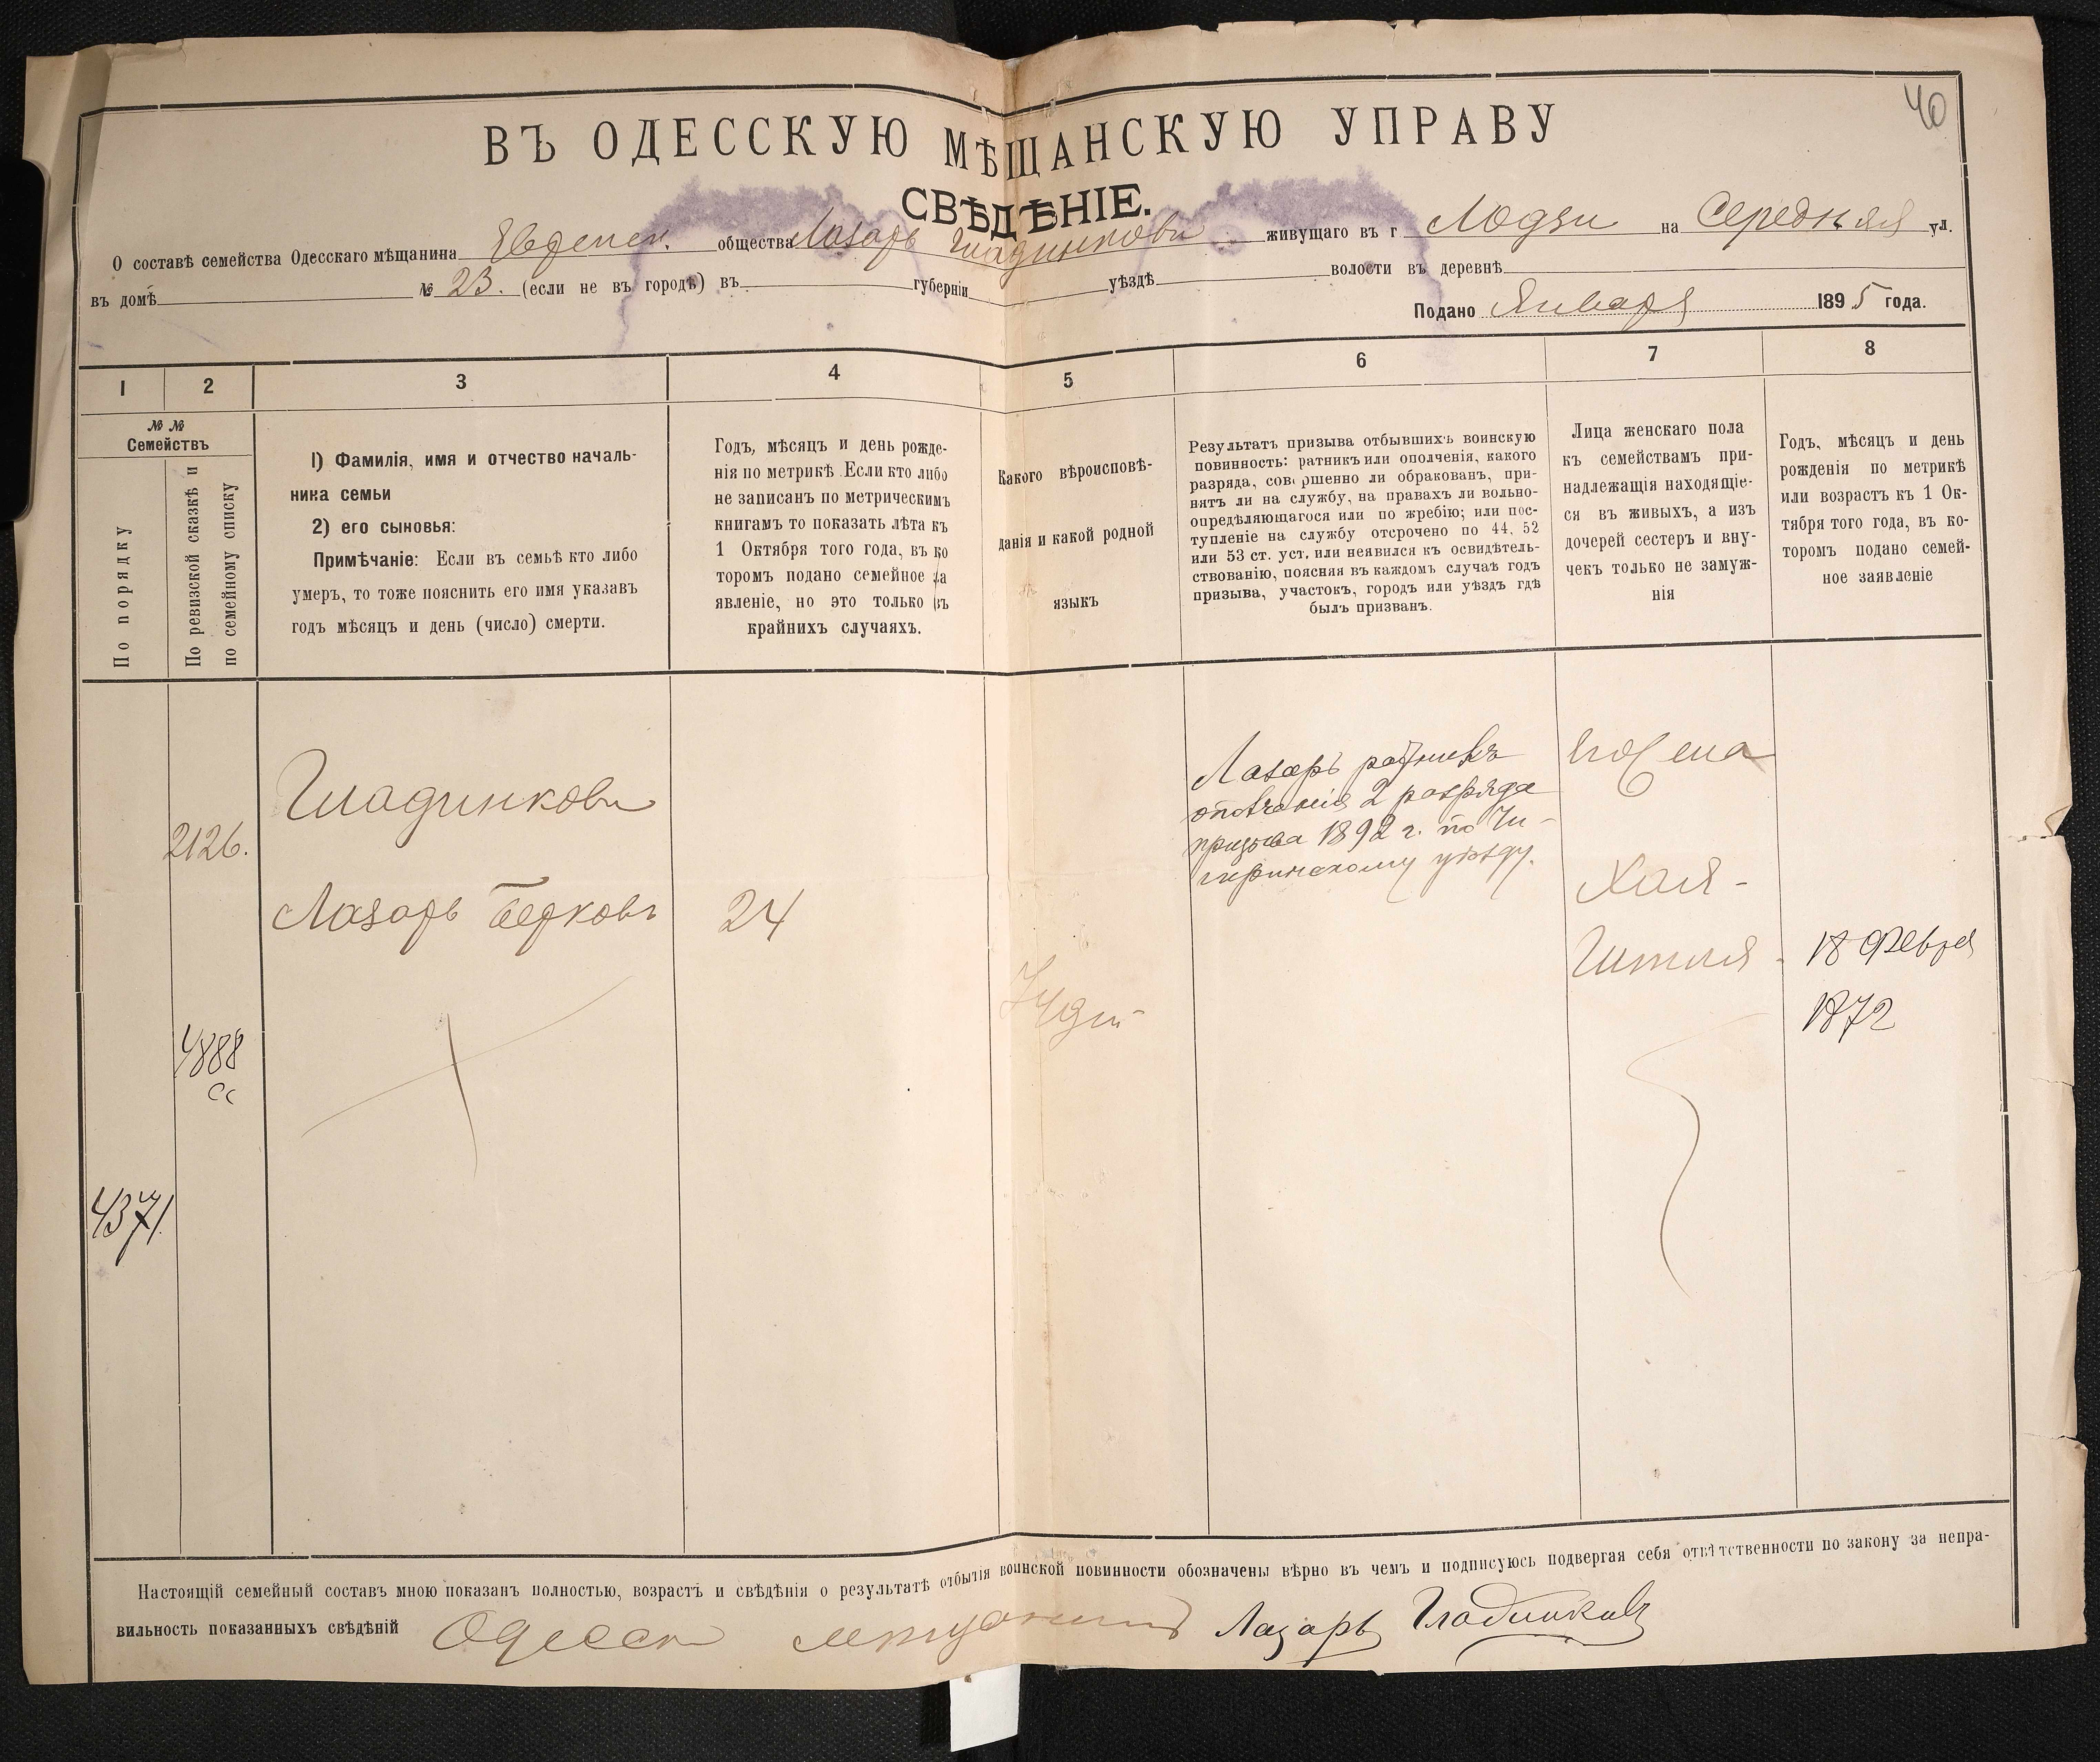 40
ВЪ ОДЕССКУЮ МѢЩАНСКУЮ УПРАВУ
СВѢДѢНІЕ.
О составѣ семейства Одесскаго мѣщанина общества Лазарь Гладниковъ живущаго въ г Лодзи на Середняя ул.
въ домѣ № 23. (если не въ городѣ) въ губерніи уѣздѣ волости въ деревнѣ
Подано Января 1895 года.
1 2 3 4 5 6 7 8
№ № Семействъ
По порядку
По ревизской сказкѣ и
по семейному списку
1) Фамилія, имя и отчество началь-
ника семьи
2) его сыновья:
Примѣчаніе: Если въ семьѣ кто либо
умеръ, то тоже пояснить его имя указавъ
годъ мѣсяцъ и день (число) смерти.
Годъ, мѣсяцъ и день рожде-
нія по метрикѣ. Если кто либо
не записанъ по метрическимъ
книгамъ то показать лѣта къ
1 Октября того года, въ ко
торомъ подано семейное за
явленіе, но это только въ
крайнихъ случаяхъ.
Какого вѣроисповѣ-
данія и какой родной
языкъ
Результатъ призыва отбывшихъ воинскую
повинность: ратникъ или ополченія, какого
разряда, совершенно ли обракованъ, при-
нятъ ли на службу, на правахъ ли вольно-
опредѣляющагося или по жребію; или пос-
тупленіе на службу отсрочено по 44, 52
или 53 ст. уст. или неявился къ освидѣтель-
ствованію, поясняя въ каждомъ случаѣ годъ
призыва, участокъ, городъ или уѣздъ гдѣ
былъ призванъ.
Лица женскаго пола
къ семействамъ при-
надлежащія находящіе-
ся въ живыхъ, а изъ
дочерей сестеръ и вну-
чекъ только не замуж-
нія
Годъ, мѣсяцъ и день
рожденія по метрикѣ
или возрастъ къ 1 Ок-
тября того года, въ ко-
торомъ подано семей-
ное заявленіе
2126.
Гладниковъ
Лазарь Берковъ
24
Іудей
Лазарь ратникъ
ополченія 2 разряда
призыва 1892 г. по Чи-
гиринскому уѣзду.
жена
Хая-
Гитля
18 Февра
1872
4888
сс
4371.
Настоящій семейный составъ мною показанъ полностью, возрастъ и свѣдѣнія о результатѣ отбытія воинской повинности обозначены вѣрно въ чемъ и подписуюсь подвергая себя отвѣтственности по закону за непра-
вильность показанныхъ свѣдѣній Одесск мѣщанинъ Лазарь Гладниковъ